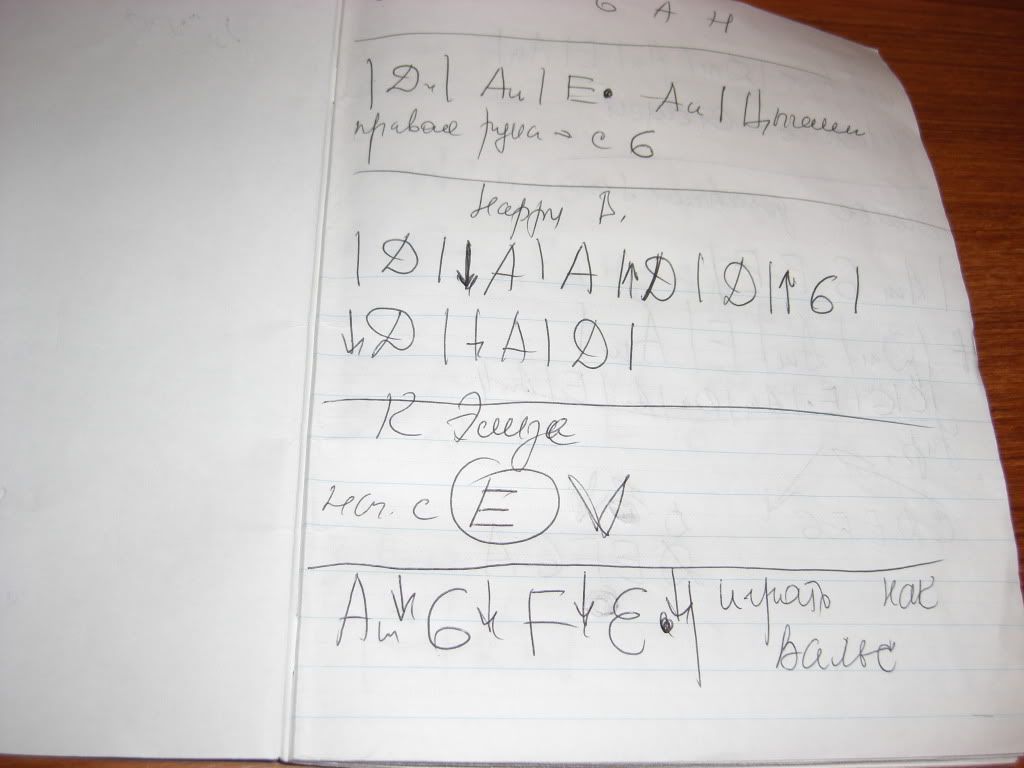 G A H
| Dm | Am | E• Am | Цыгани
правая рука → с 6
Happy B.
| D | ↓ A | A | ↑ D | D | ↑ G |
↓ D | ↓ A | D |
К Элизе
нач. с E V
Am ↓ G ↓ F ↓ E• ↓ | играть как
вальс